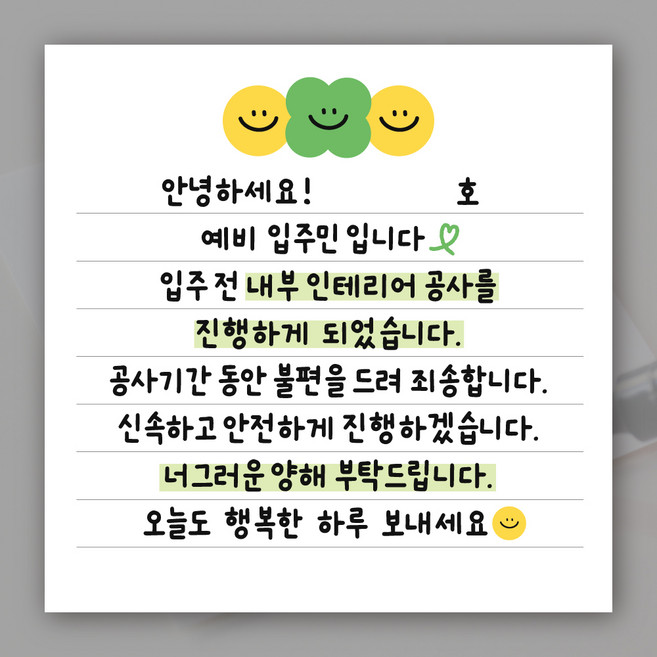 안녕하세요! 호
예비 입주민 입니다
입주 전 내부 인테리어 공사를
진행하게 되었습니다.
공사기간 동안 불편을 드려 죄송합니다.
신속하고 안전하게 진행하겠습니다.
너그러운 양해 부탁드립니다.
오늘도 행복한 하루 보내세요